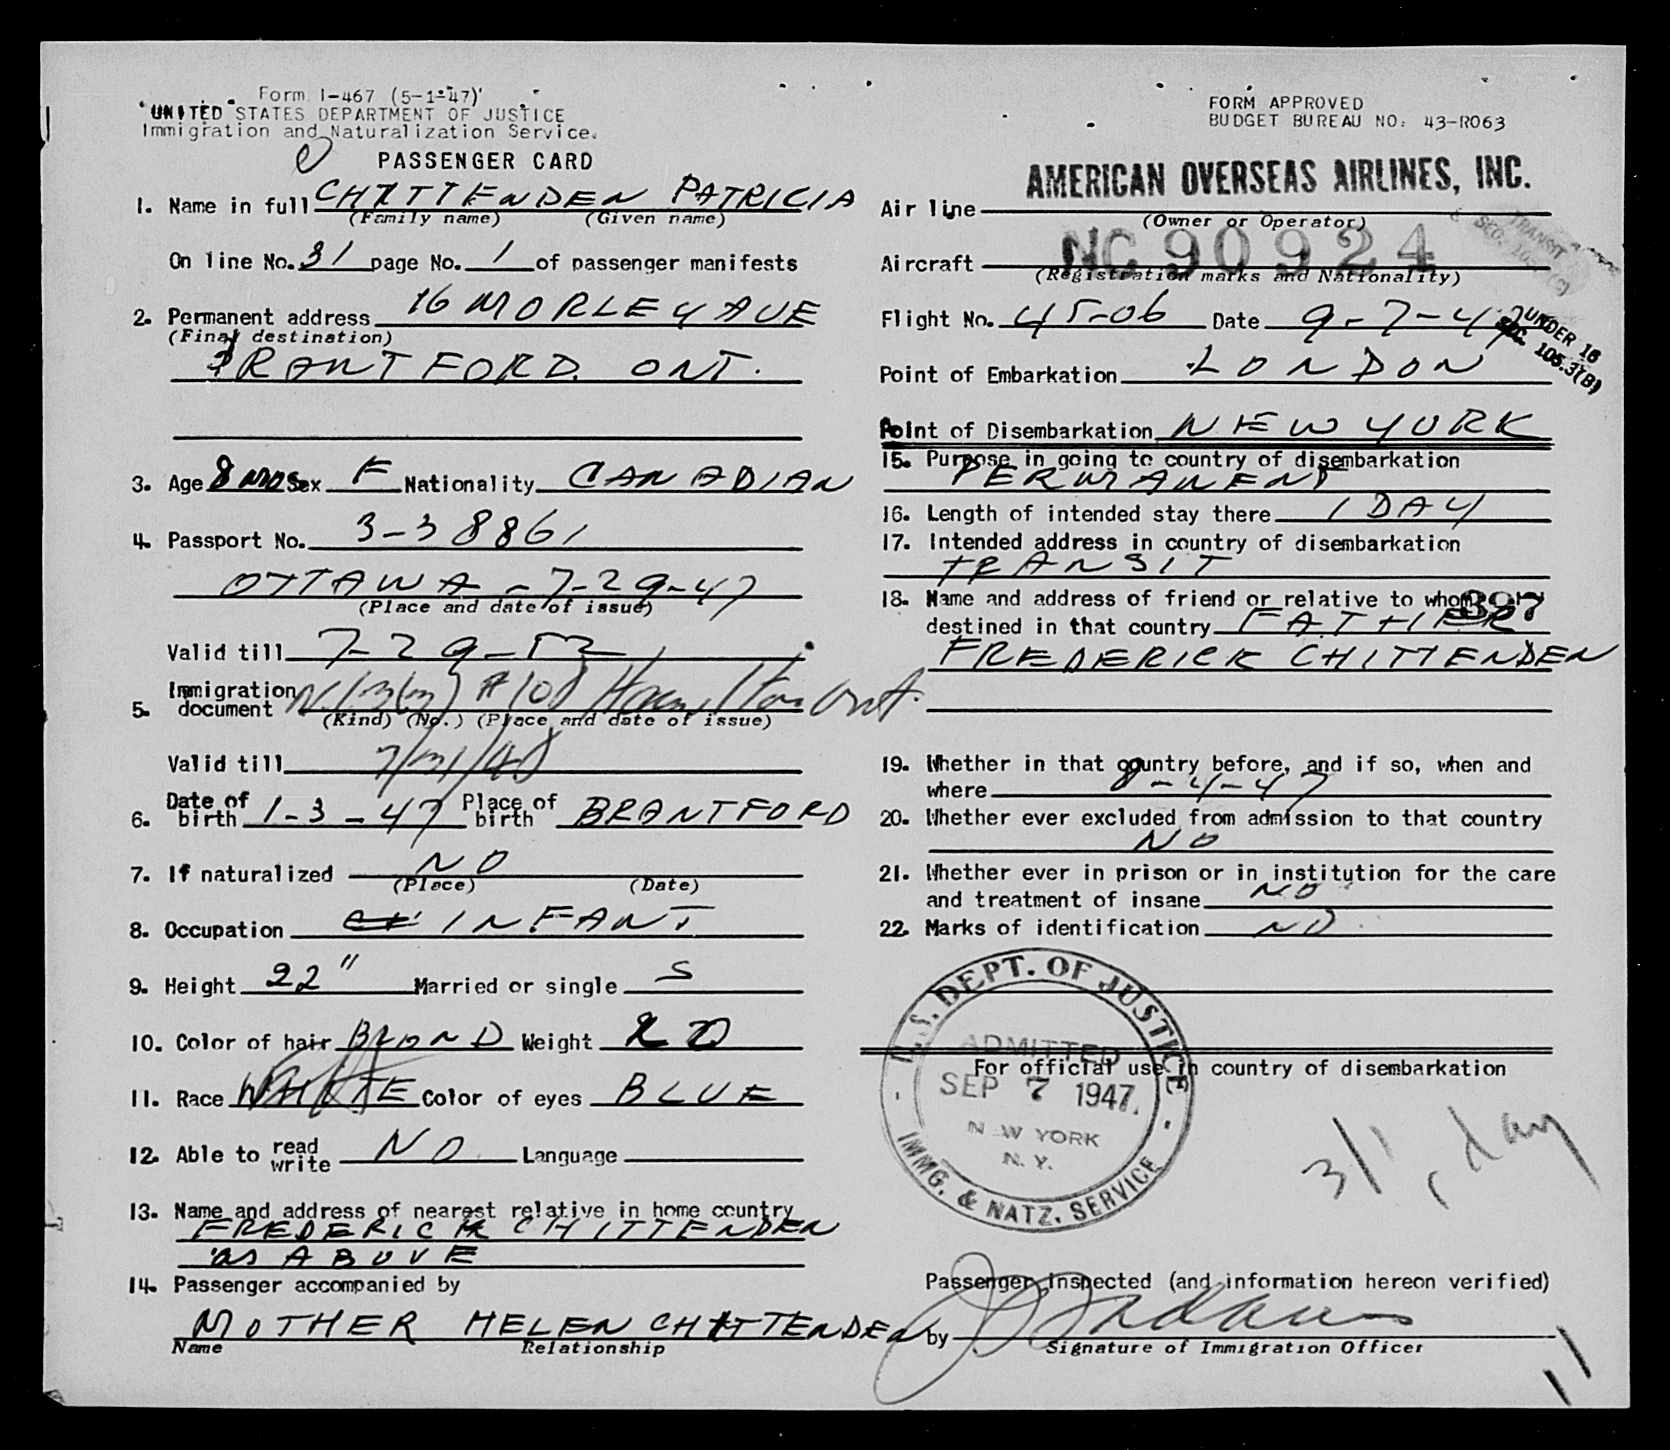 Form I-467 (5-1-47)
UNITED STATES DEPARTMENT OF JUSTICE
Immigration and Naturalization Service.
PASSENGER CARD
1. Name in full CHITTENDEN PATRICIA
(Family name) (Given name)
On line No. 31 page No. 1 of passenger manifests
2. Permanent address 16 MORLEY AVE
(Final destination)
BRANTFORD. ONT.
3. Age 8 mos Sex F Nationality CANADIAN
4. Passport No. 3-38861
OTTAWA - 7-29-47
(Place and date of issue)
Valid till 7-29-52
5. Immigration document #108 Hamilton Ont.
(Kind) (No.) (Place and date of issue)
Valid till 7/31/48
6. Date of birth 1-3-47 Place of birth BRANTFORD
7. If naturalized NO
(Place) (Date)
8. Occupation INFANT
9. Height 22" Married or single S
10. Color of hair BLOND Weight 20
11. Race WHITE Color of eyes BLUE
12. Able to read write NO Language
13. Name and address of nearest relative in home country
FREDERICK CHITTENDEN
as ABOVE
14. Passenger accompanied by
MOTHER HELEN CHITTENDEN
Name Relationship
FORM APPROVED
BUDGET BUREAU NO. 43-R063
Air line AMERICAN OVERSEAS AIRLINES, INC.
(Owner or Operator)
Aircraft NC 90924
(Registration marks and Nationality)
TRANSIT
Flight No. 45-06 Date 9-7-47
UNDER 16
SEC. 105.3(B)
Point of Embarkation LONDON
Point of Disembarkation NEW YORK
15. Purpose in going to country of disembarkation
PERMANENT
16. Length of intended stay there 1 DAY
17. Intended address in country of disembarkation
TRANSIT
18. Name and address of friend or relative to whom 397
destined in that country FATHER
FREDERICK CHITTENDEN
19. Whether in that country before, and if so, when and
where 8-4-47
20. Whether ever excluded from admission to that country
NO
21. Whether ever in prison or in institution for the care
and treatment of insane NO
22. Marks of identification NO
U.S. DEPT. OF JUSTICE
ADMITTED
SEP 7 1947
NEW YORK
N. Y.
IMMG. & NATZ. SERVICE
For official use in country of disembarkation
3/1 1 day
Passenger Inspected (and information hereon verified)
by
Signature of Immigration Officer